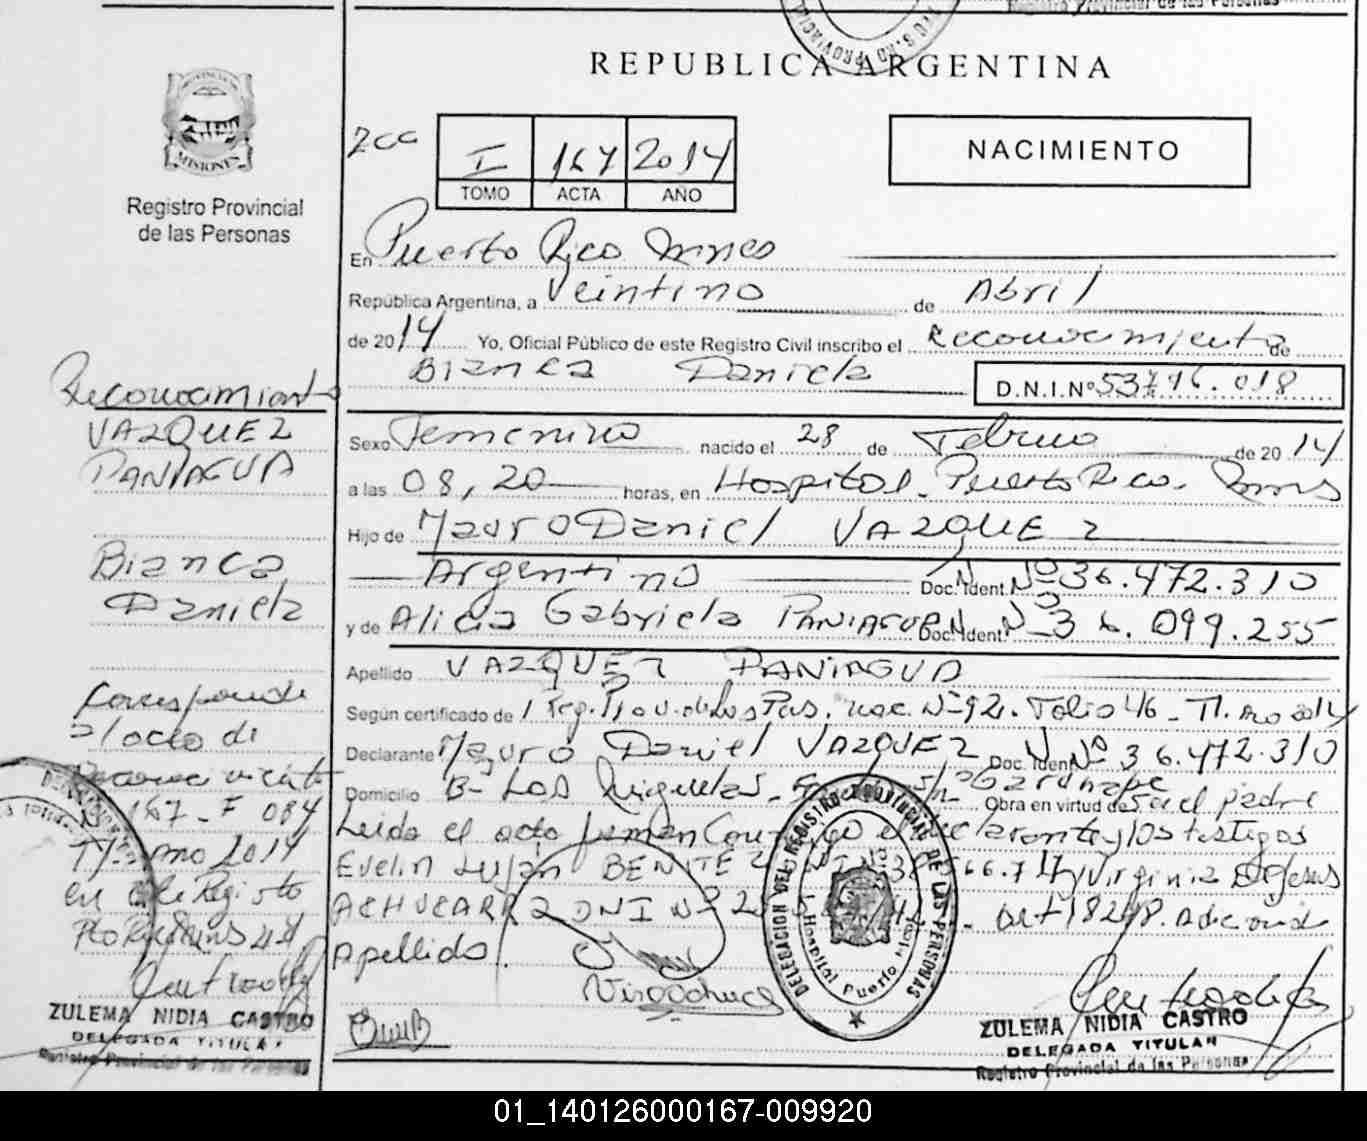 Registro Provincial de las Personas
REPUBLICA ARGENTINA
MISIONES
Registro Provincial
de las Personas
I 167 2014
TOMO ACTA AÑO
NACIMIENTO
En Puerto Rico Mnes
República Argentina, a Veintino de Abril
de 2014 Yo, Oficial Público de este Registro Civil inscribo el Reconocimiento de
Bianca Daniela D.N.I.Nº 53.716.018
Sexo Femenino nacido el 28 de Febrero de 2014
a las 08,20 horas, en Hospital. Puerto Rico. Mnes
Hijo de Mauro Daniel VAZQUEZ
Argentino Doc. Ident. Nº 36.472.310
y de Alicia Gabriela PANIAGUA Doc. Ident. Nº 36.099.255
Apellido VAZQUEZ PANIAGUA
Según certificado de Reg. Prov. de las Pers. nac. Nº 92. Folio 46 - T1. Año 2014
Declarante Mauro Daniel VAZQUEZ Doc. Ident. Nº 36.472.310
Domicilio Bº Los S/Nº Garuhape Obra en virtud de Ser el padre
Leida el acta firman Conmigo el declarante y los testigos
Evelin Luján BENITEZ DNI Nº y Virginia De Jesus
ACHUCARRO DNI Nº Art 18248. Adiciona
Apellido.
Reconocimiento
VAZQUEZ
PANIAGUA
Bianca
Daniela
Corresponde
al acta de
Reconocimiento
Nº 167 - F 084
Tº I Año 2014
en este Registro
ZULEMA NIDIA CASTRO
DELEGADA TITULAR
Registro Provincial de las Personas
DELEGACION DEL REGISTRO PROVINCIAL DE LAS PERSONAS
Hospital Puerto Rico
ZULEMA NIDIA CASTRO
DELEGADA TITULAR
Registro Provincial de las Personas
01_140126000167-009920